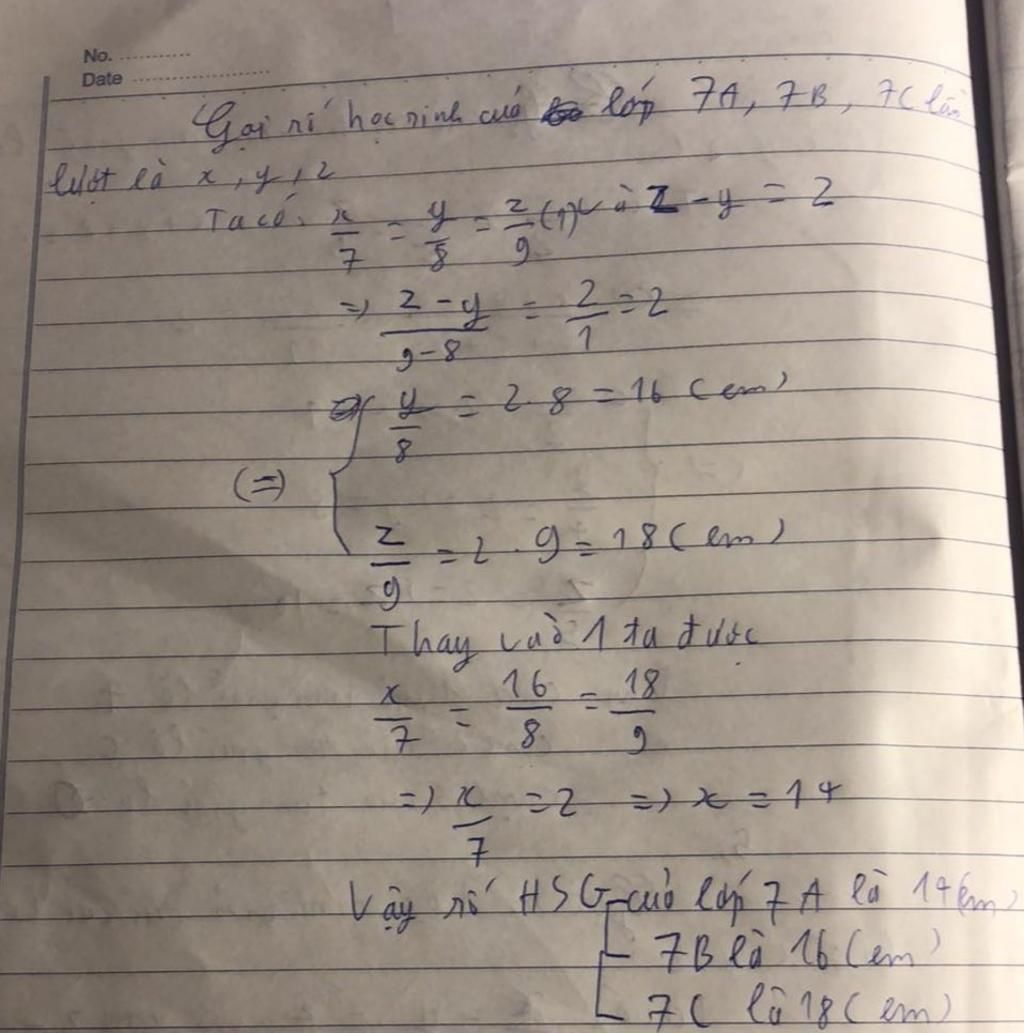 No. ............
Date ........................
Gọi số học sinh của lớp 7A, 7B, 7C lần
lượt là x, y, z
Ta có: x/7 = y/8 = z/9 (1) và z - y = 2
=> (z - y)/(9 - 8) = 2/1 = 2
(=) { y/8 = 2.8 = 16 (em)
z/9 = 2.9 = 18 (em)
Thay vào 1 ta được
x/7 = 16/8 = 18/9
=> x/7 = 2 => x = 14
Vậy số HSG của lớp 7A là 14 (em)
7B là 16 (em)
7C là 18 (em)